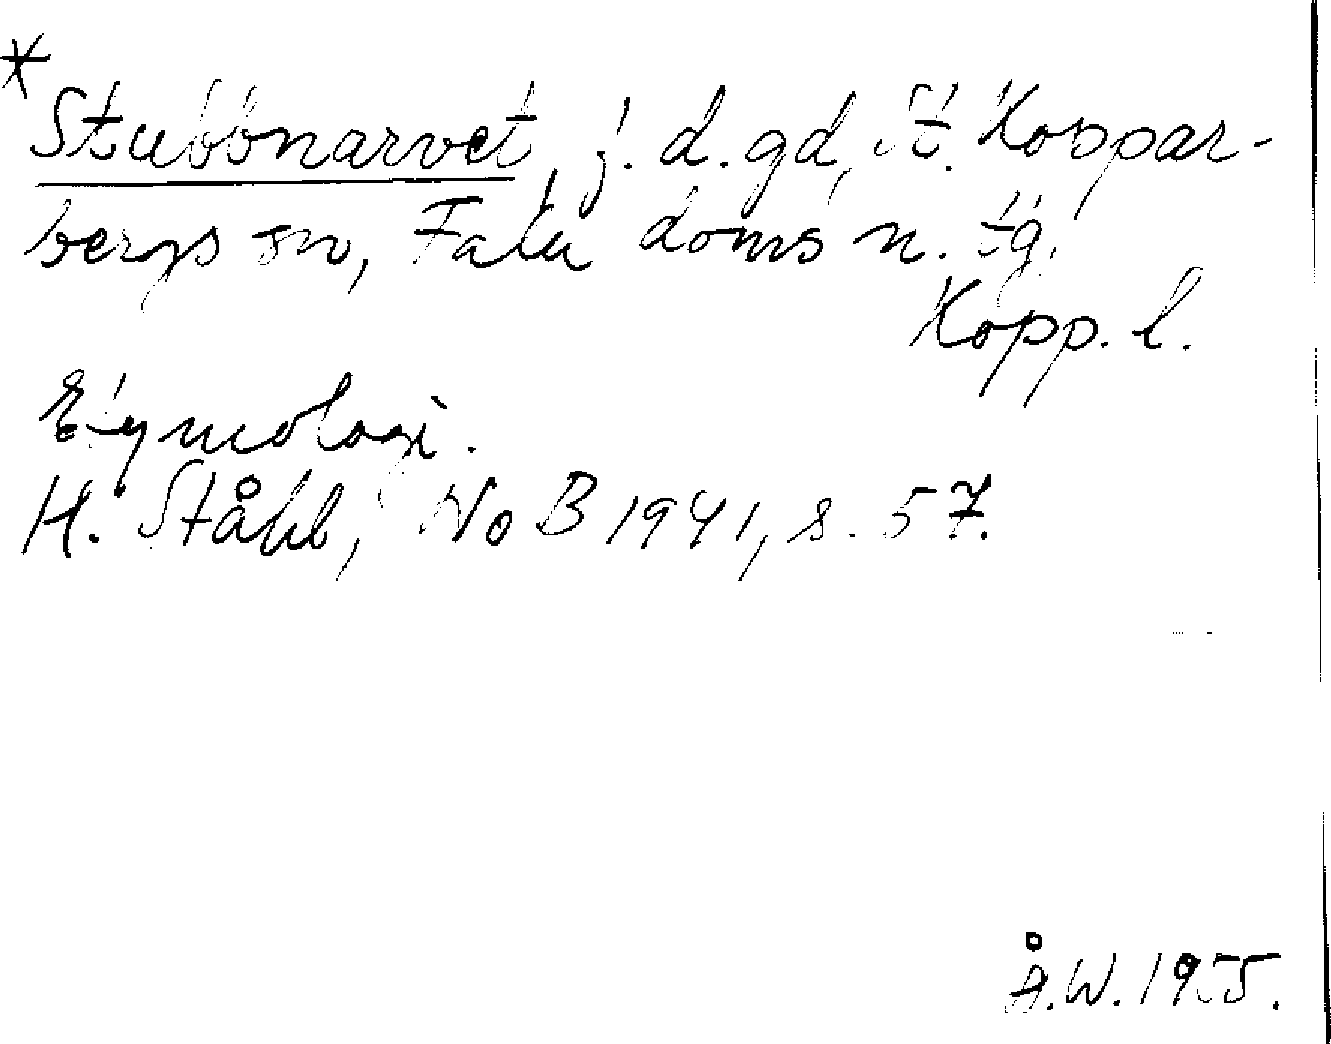 *
Stubbnarvet, j. d. gd, St. Koppar-
bergs sn, Falu doms n. tg.
Kopp. l.
Etymologi.
H. Ståhl, NoB 1941, s. 57.
Å.W. 1955.